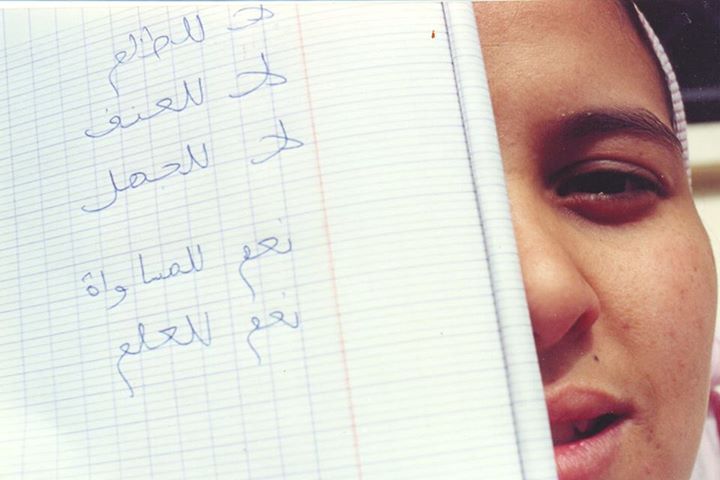 لا للظلم
لا للعنف
لا للجهل
نعم للمساواة
نعم للعلم